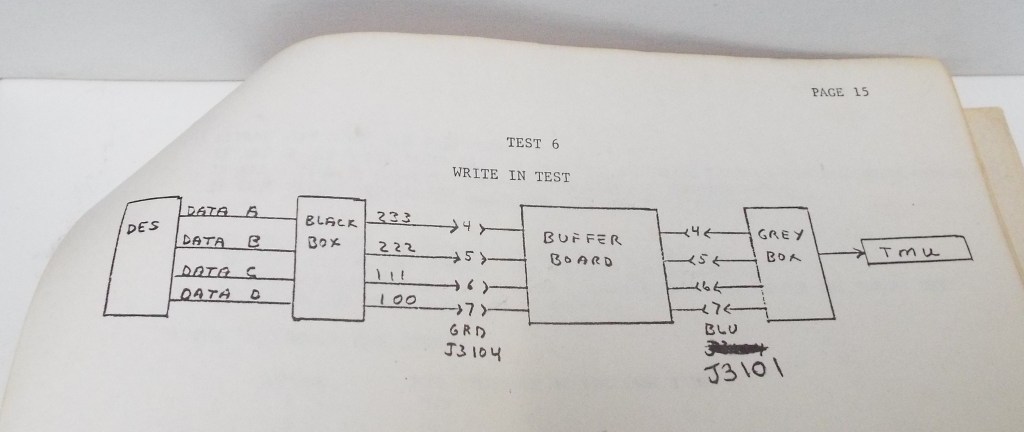 PAGE 15
TEST 6
WRITE IN TEST
DES
DATA A
DATA B
DATA C
DATA D
BLACK
BOX
233
222
111
100
4
5
6
7
GRD
J3104
BUFFER
BOARD
4
5
6
7
BLU
J3101
GREY
BOX
TMU